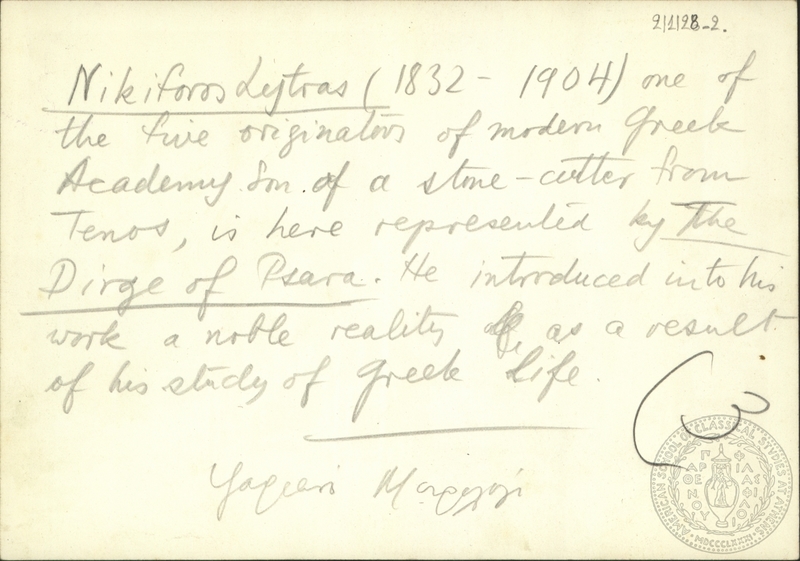 2/1/28-2.
Nikiforos Lytras (1832 - 1904) one of
the five originators of modern Greek
Academy. Son of a stone-cutter from
Tenos, is here represented by The
Dirge of Psara. He introduced into his
work a noble reality as a result
of his study of Greek Life.
AMERICAN SCHOOL OF CLASSICAL STUDIES AT ATHENS
ΠΑΡΘΕΝΟΥ ΦΙΛΑΣ ΦΙΑΛΑΙ
MDCCCLXXXI